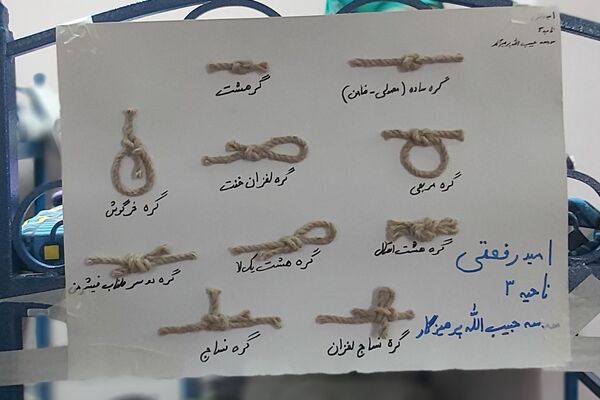 ناحیه ۳
مدرسه حبیب الله پرهیزگار
گره ساده (معمولی - خاین)
گره هشت
گره مربعی
گره لغزان خفت
گره خرگوش
گره هشت
گره هشت یک لا
گره دو سر طناب
امید رفعتی
ناحیه ۳
مدرسه حبیب الله پرهیزگار
گره نساج لغزان
گره نساج